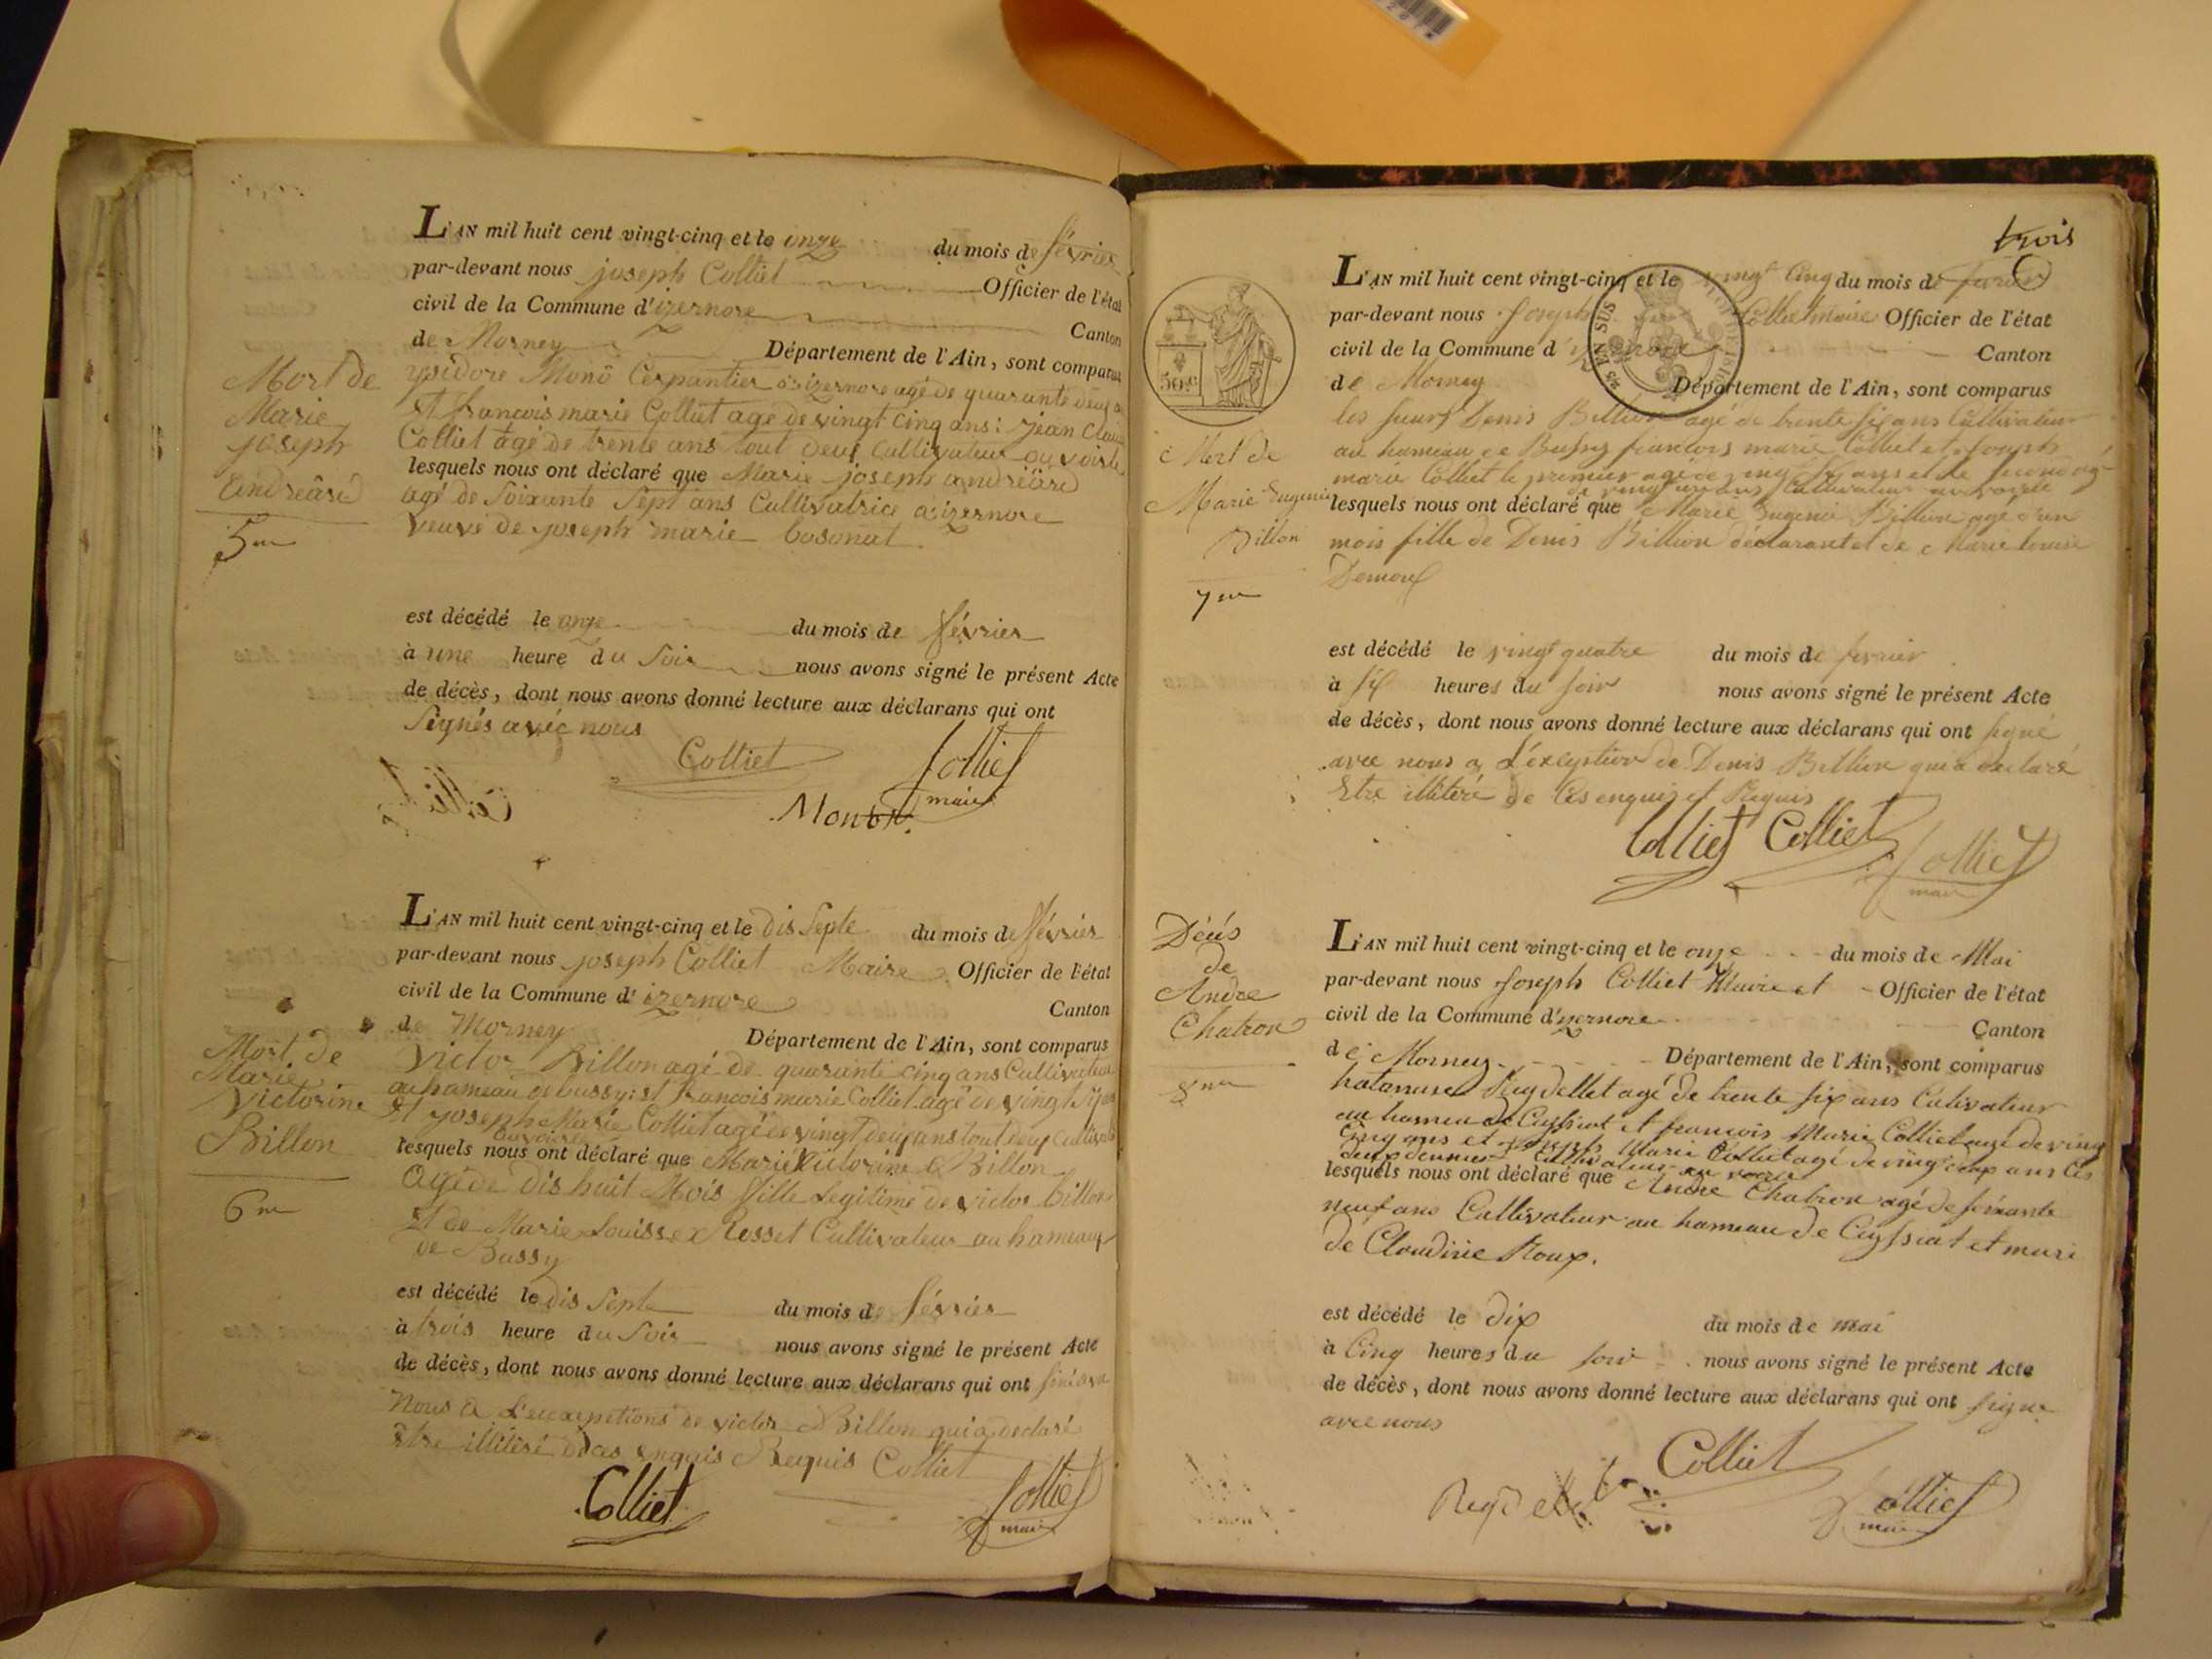 L'AN mil huit cent vingt-cinq et le onze du mois de février
par-devant nous joseph Colliet Officier de l'état
civil de la Commune d'izernore Canton
de Morney Département de l'Ain, sont comparus
ysidore Cerpantier a izernore agé de quarante deux
et francois marie Colliet age de vingt cinq ans: jean
Colliet agé de trente ans tout deux Cultivateur
lesquels nous ont déclaré que Marie joseph andréârd
agé de Soixante Sept ans Cultivatrice a izernore
veuve de joseph marie
Mort de
Marie
joseph
andréârd
5me
est décédé le onze du mois de février
à une heure du Soir nous avons signé le présent Acte
de décès, dont nous avons donné lecture aux déclarans qui ont
Signés avec nous
Colliet Colliet
maire
L'AN mil huit cent vingt-cinq et le dis Septe du mois de février
par-devant nous joseph Colliet Maire Officier de l'état
civil de la Commune d'izernore Canton
de Morney Département de l'Ain, sont comparus
victor Billon agé de quarante cinq ans Cultivateur
au hameau de bussy: et francois marie Colliet agé de vingt
et joseph Marie Colliet agé de vingt deux ans tout deux
lesquels nous ont déclaré que Marie Victorine Billon
Agé de dis huit Mois fille Legitime de victor billon
et de Marie Louisse Resset Cultivateur au hameaux
de Bussy
Mort de
Marie
Victorine
Billon
6me
est décédé le dis Septe du mois de février
à trois heure du Soir nous avons signé le présent Acte
de décès, dont nous avons donné lecture aux déclarans qui ont
Nous a de victor Billon qui a declaré
etre illitéré de ces enquis Requis Colliet
Colliet Colliet
maire
trois
L'AN mil huit cent vingt-cinq et le vingt Cinq du mois de fevrier
par-devant nous Joseph Colliet maire Officier de l'état
civil de la Commune d'izernore Canton
de Morney Département de l'Ain, sont comparus
les Denis Billion agé de trente six ans Cultivateur
au hameau de Bussy francois marie Colliet et Joseph
marie Colliet le premier agé de ans et le second
lesquels nous ont déclaré que Marie Eugenie Billion agé d'un
mois fille de Denis Billion déclarant et de Marie louise
50c.
Mort de
Marie Eugenie
Billon
7me
est décédé le vingt quatre du mois de fevrier
à six heures du soir nous avons signé le présent Acte
de décès, dont nous avons donné lecture aux déclarans qui ont signé
avec nous a L'éxception de Denis Billion qui a declaré
Etre illitéré de Ces enquis et Requis
Colliet Colliet Colliet
maire
L'AN mil huit cent vingt-cinq et le onze du mois de Mai
par-devant nous Joseph Colliet Maire et Officier de l'état
civil de la Commune d'izernore Canton
de Morney Département de l'Ain, sont comparus
Reydellet agé de trente six ans Cultivateur
au hameau de Ceyssiat et francois Marie Colliet agé de vingt
Cinq ans et joseph Marie Colliet agé de vingt deux ans
lesquels nous ont déclaré que André Chatron agé de soixante
neuf ans Cultivateur au hameau de Ceyssiat et mari
de Claudine Roux.
Décés
de
André
Chatron
8me
est décédé le Dix du mois de mai
à Cinq heures du soir nous avons signé le présent Acte
de décès, dont nous avons donné lecture aux déclarans qui ont signé
avec nous
Colliet
Reydellet Colliet
maire